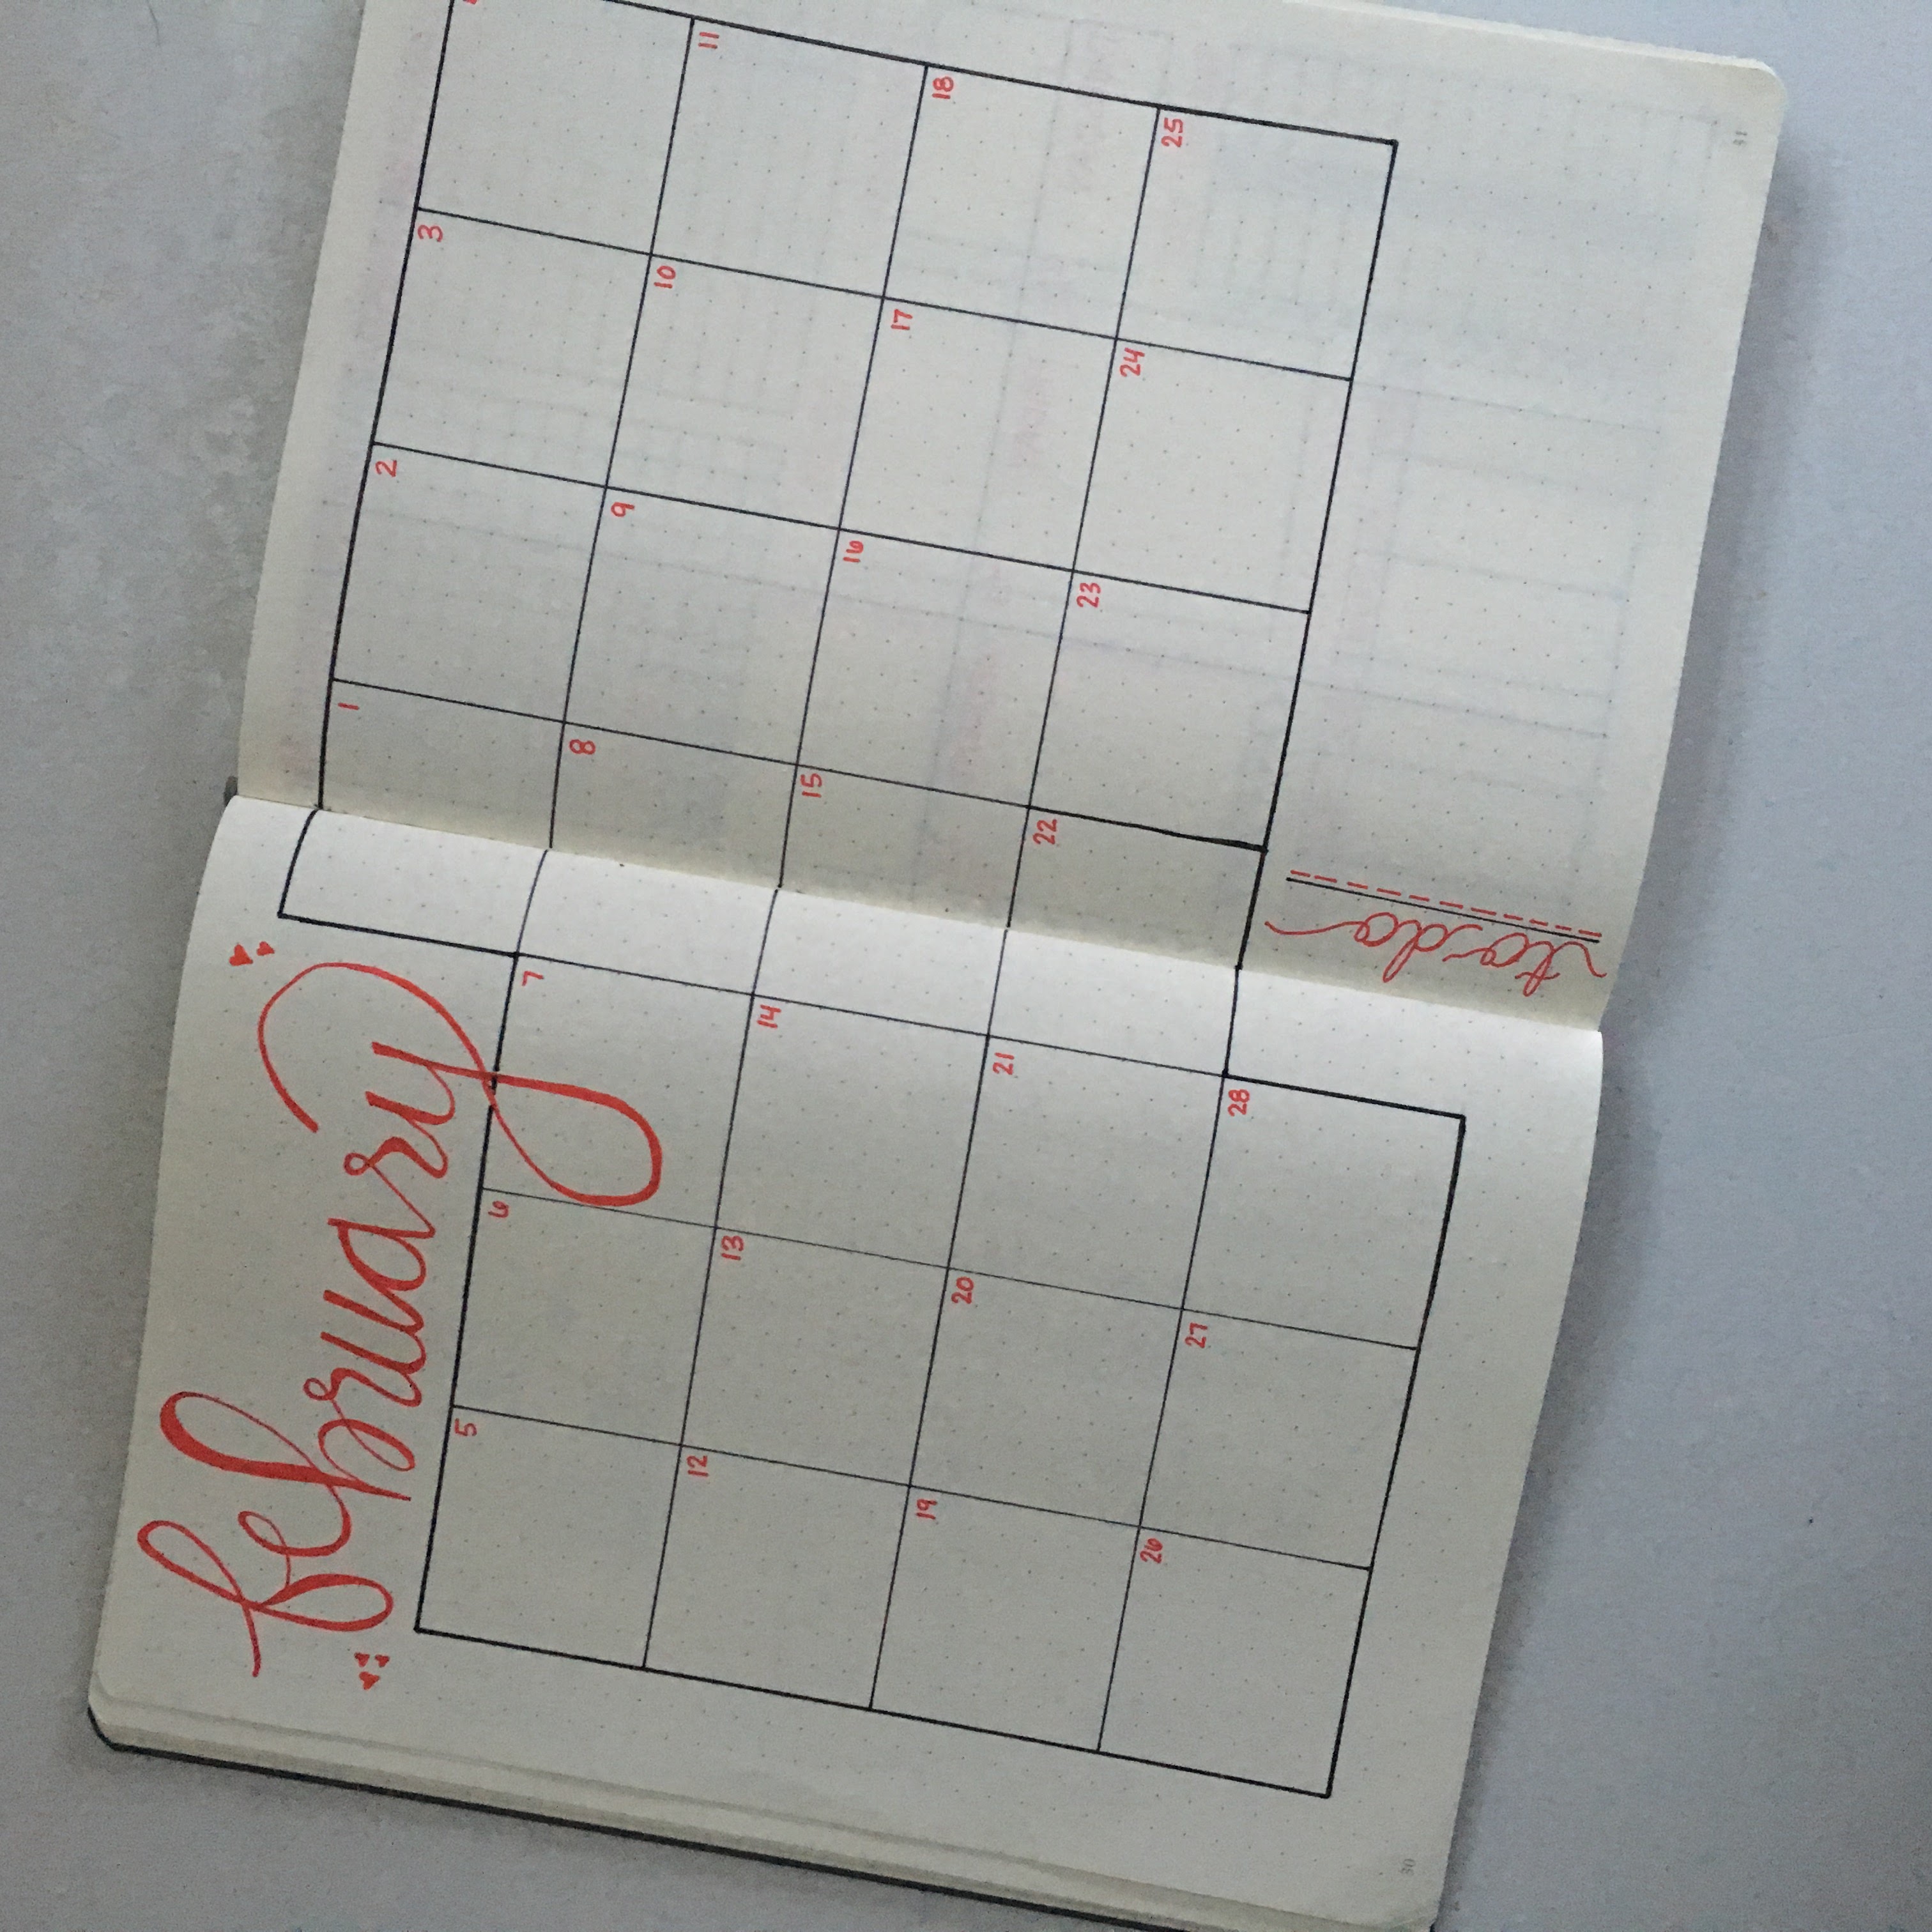 february
1 2 3
5 6 7 8 9 10 11
12 13 14 15 16 17 18
19 20 21 22 23 24 25
26 27 28
to do
30 31